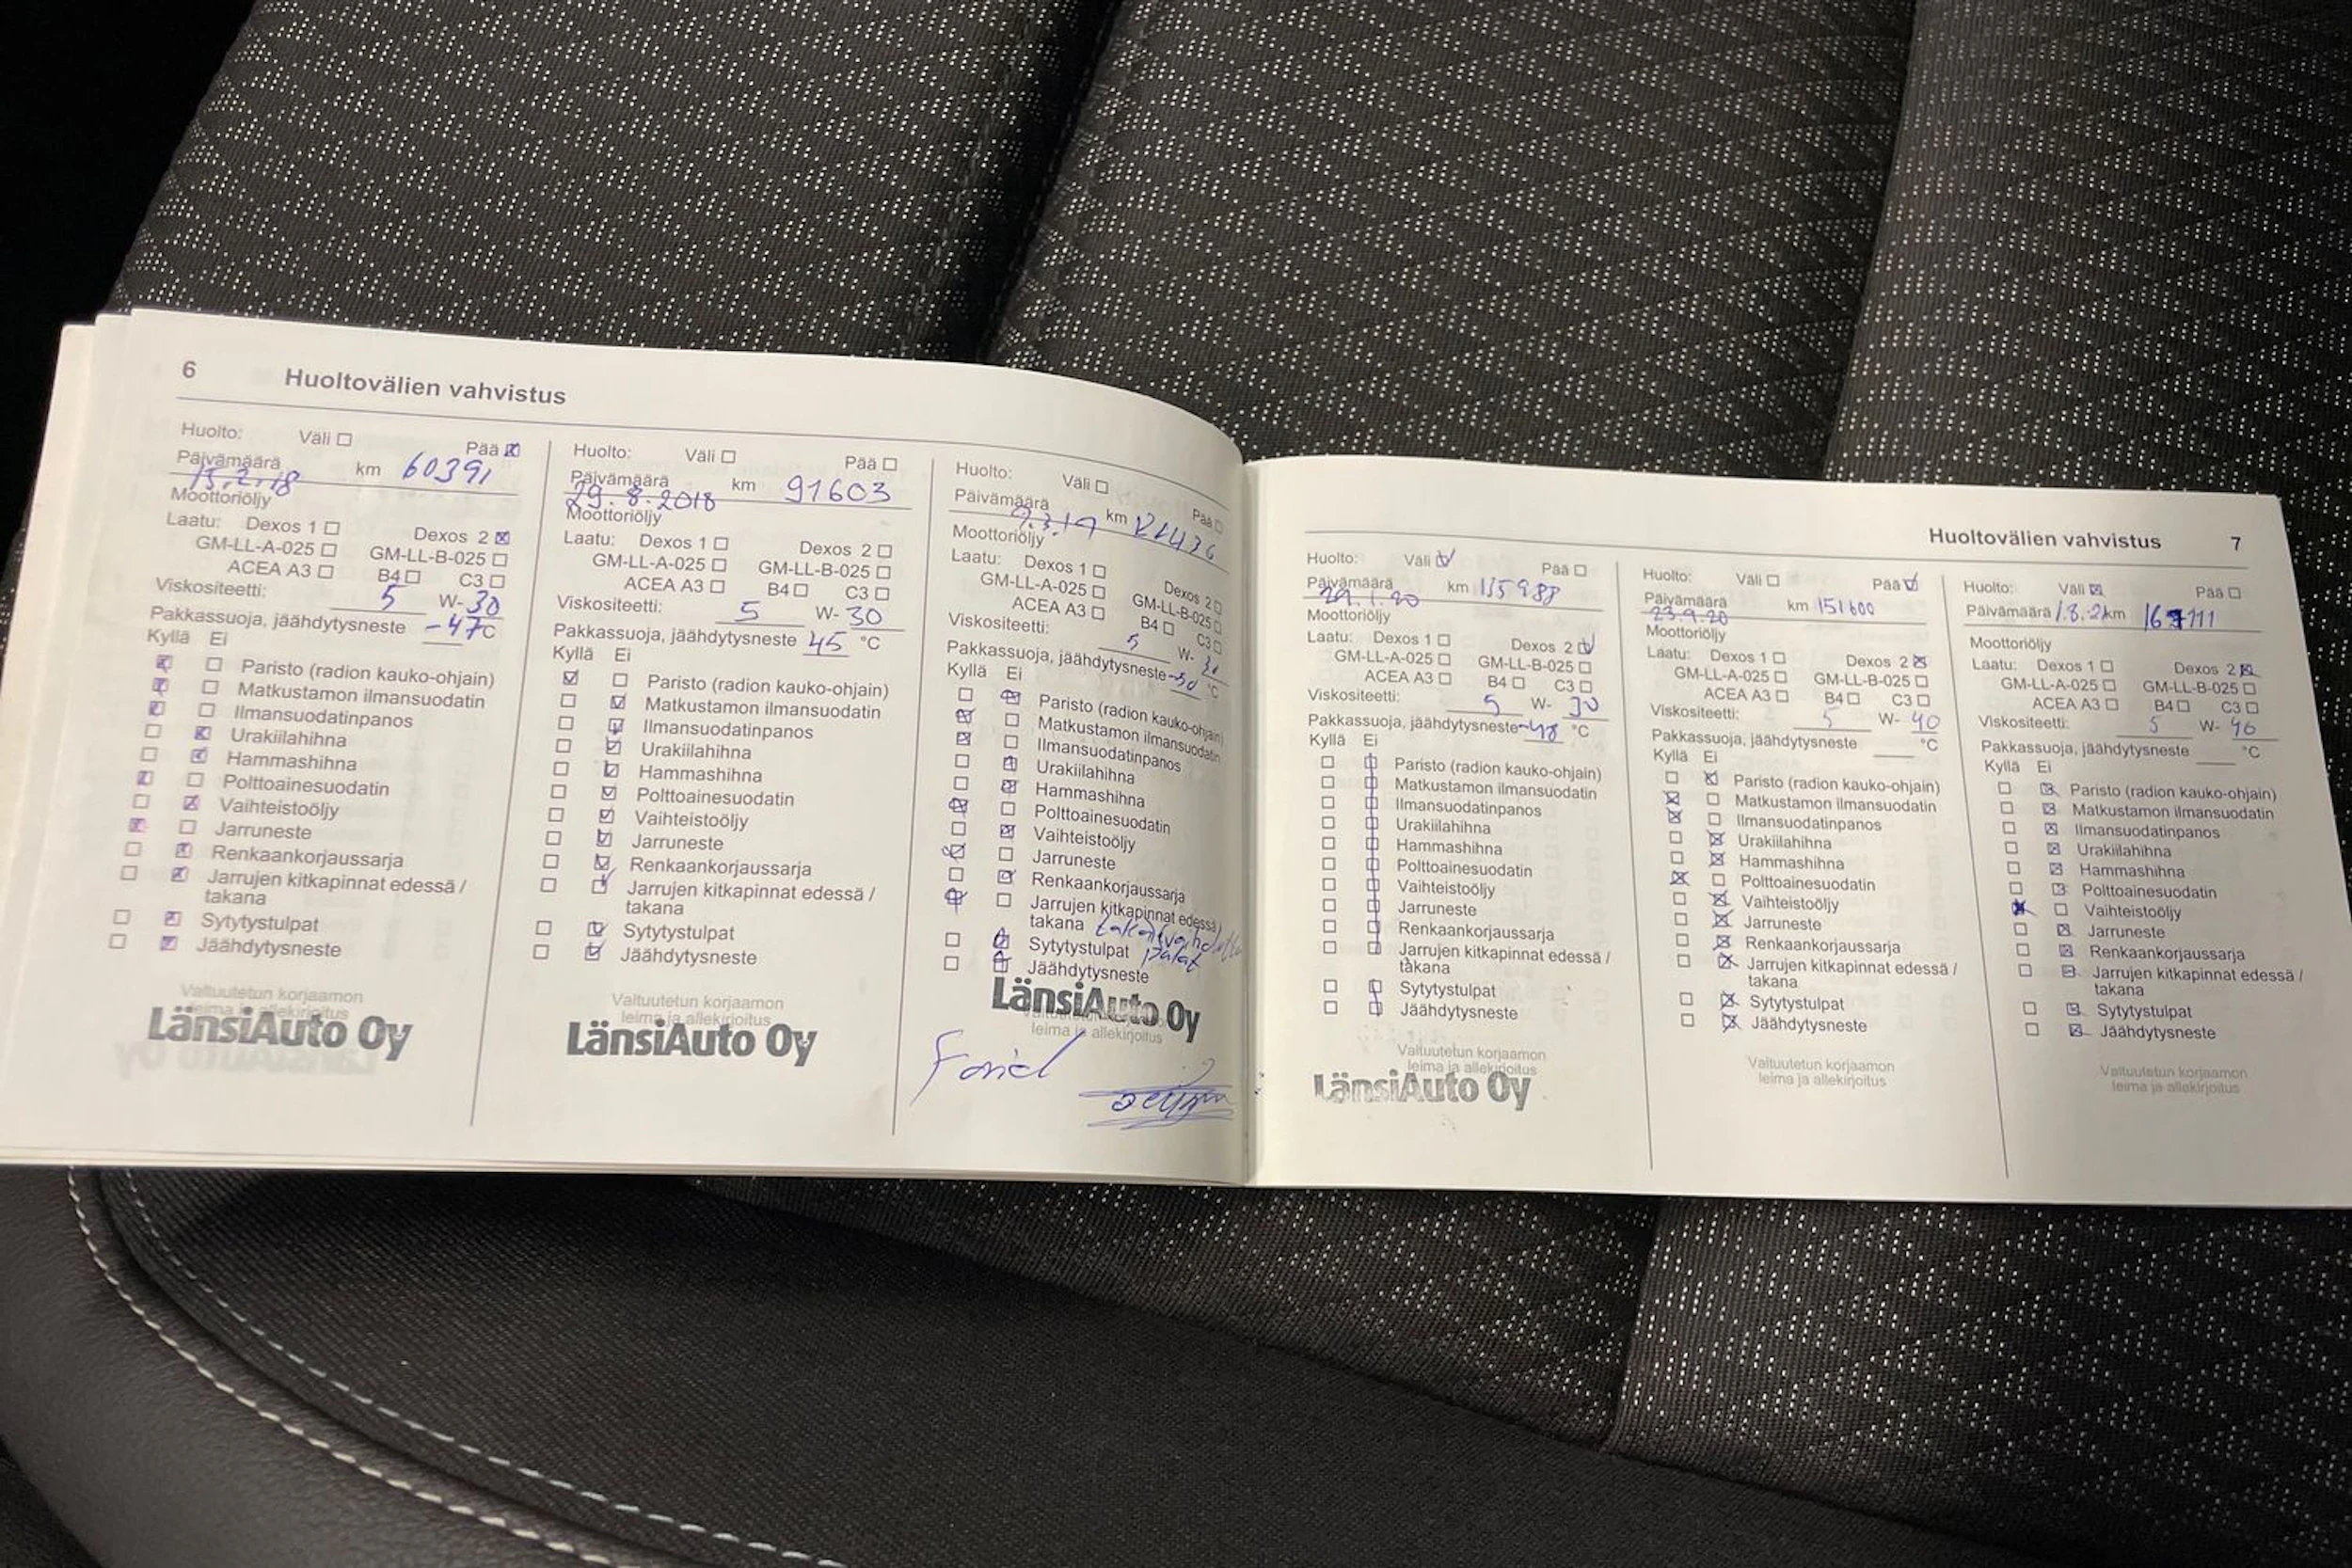 6 Huoltovälien vahvistus
Huolto: Väli ☐ Pää ☒
Päivämäärä 15.2.18 km 60391
Moottoriöljy
Laatu: Dexos 1 ☐ Dexos 2 ☒
GM-LL-A-025 ☐ GM-LL-B-025 ☐
ACEA A3 ☐ B4 ☐ C3 ☐
Viskositeetti: 5 W- 30
Pakkassuoja, jäähdytysneste -47 °C
Kyllä Ei
☒ ☐ Paristo (radion kauko-ohjain)
☒ ☐ Matkustamon ilmansuodatin
☒ ☐ Ilmansuodatinpanos
☐ ☒ Urakiilahihna
☐ ☒ Hammashihna
☒ ☐ Polttoainesuodatin
☐ ☒ Vaihteistoöljy
☒ ☐ Jarruneste
☐ ☒ Renkaankorjaussarja
☐ ☒ Jarrujen kitkapinnat edessä /
takana
☐ ☒ Sytytystulpat
☐ ☒ Jäähdytysneste
Valtuutetun korjaamon
leima ja allekirjoitus
LänsiAuto Oy
Huolto: Väli ☐ Pää ☐
Päivämäärä 29.8.2018 km 91603
Moottoriöljy
Laatu: Dexos 1 ☐ Dexos 2 ☐
GM-LL-A-025 ☐ GM-LL-B-025 ☐
ACEA A3 ☐ B4 ☐ C3 ☐
Viskositeetti: 5 W- 30
Pakkassuoja, jäähdytysneste 45 °C
Kyllä Ei
☑ ☐ Paristo (radion kauko-ohjain)
☐ ☑ Matkustamon ilmansuodatin
☐ ☑ Ilmansuodatinpanos
☐ ☑ Urakiilahihna
☐ ☑ Hammashihna
☐ ☑ Polttoainesuodatin
☐ ☑ Vaihteistoöljy
☐ ☑ Jarruneste
☐ ☑ Renkaankorjaussarja
☐ ☑ Jarrujen kitkapinnat edessä /
takana
☐ ☑ Sytytystulpat
☐ ☑ Jäähdytysneste
Valtuutetun korjaamon
leima ja allekirjoitus
LänsiAuto Oy
Huolto: Väli ☐ Pää ☐
Päivämäärä 9.3.19 km 121436
Moottoriöljy
Laatu: Dexos 1 ☐ Dexos 2 ☐
GM-LL-A-025 ☐ GM-LL-B-025 ☐
ACEA A3 ☐ B4 ☐ C3 ☐
Viskositeetti: 5 W- 30
Pakkassuoja, jäähdytysneste -50 °C
Kyllä Ei
☐ ☒ Paristo (radion kauko-ohjain)
☒ ☐ Matkustamon ilmansuodatin
☒ ☐ Ilmansuodatinpanos
☐ ☒ Urakiilahihna
☐ ☒ Hammashihna
☒ ☐ Polttoainesuodatin
☐ ☒ Vaihteistoöljy
☒ ☐ Jarruneste
☐ ☒ Renkaankorjaussarja
☒ ☐ Jarrujen kitkapinnat edessä /
takana
☐ ☒ Sytytystulpat palat
☐ ☒ Jäähdytysneste
LänsiAuto Oy
leima ja allekirjoitus
Huoltovälien vahvistus 7
Huolto: Väli ☑ Pää ☐
Päivämäärä 29.1.20 km 135988
Moottoriöljy
Laatu: Dexos 1 ☐ Dexos 2 ☑
GM-LL-A-025 ☐ GM-LL-B-025 ☐
ACEA A3 ☐ B4 ☐ C3 ☐
Viskositeetti: 5 W- 30
Pakkassuoja, jäähdytysneste -48 °C
Kyllä Ei
☐ ☒ Paristo (radion kauko-ohjain)
☐ ☒ Matkustamon ilmansuodatin
☐ ☒ Ilmansuodatinpanos
☐ ☒ Urakiilahihna
☐ ☒ Hammashihna
☐ ☒ Polttoainesuodatin
☐ ☒ Vaihteistoöljy
☐ ☒ Jarruneste
☐ ☒ Renkaankorjaussarja
☐ ☒ Jarrujen kitkapinnat edessä /
takana
☐ ☒ Sytytystulpat
☐ ☒ Jäähdytysneste
Valtuutetun korjaamon
leima ja allekirjoitus
LänsiAuto Oy
Huolto: Väli ☐ Pää ☑
Päivämäärä 23.9.20 km 151600
Moottoriöljy
Laatu: Dexos 1 ☐ Dexos 2 ☒
GM-LL-A-025 ☐ GM-LL-B-025 ☐
ACEA A3 ☐ B4 ☐ C3 ☐
Viskositeetti: 5 W- 40
Pakkassuoja, jäähdytysneste °C
Kyllä Ei
☐ ☒ Paristo (radion kauko-ohjain)
☒ ☐ Matkustamon ilmansuodatin
☒ ☐ Ilmansuodatinpanos
☐ ☒ Urakiilahihna
☐ ☒ Hammashihna
☒ ☐ Polttoainesuodatin
☐ ☒ Vaihteistoöljy
☐ ☒ Jarruneste
☐ ☒ Renkaankorjaussarja
☐ ☒ Jarrujen kitkapinnat edessä /
takana
☐ ☒ Sytytystulpat
☐ ☒ Jäähdytysneste
Valtuutetun korjaamon
leima ja allekirjoitus
Huolto: Väli ☒ Pää ☐
Päivämäärä 18.2 km
Moottoriöljy
Laatu: Dexos 1 ☐ Dexos 2 ☒
GM-LL-A-025 ☐ GM-LL-B-025 ☐
ACEA A3 ☐ B4 ☐ C3 ☐
Viskositeetti: 5 W- 40
Pakkassuoja, jäähdytysneste °C
Kyllä Ei
☐ ☒ Paristo (radion kauko-ohjain)
☐ ☒ Matkustamon ilmansuodatin
☐ ☒ Ilmansuodatinpanos
☐ ☒ Urakiilahihna
☐ ☒ Hammashihna
☐ ☒ Polttoainesuodatin
☒ ☐ Vaihteistoöljy
☐ ☒ Jarruneste
☐ ☒ Renkaankorjaussarja
☐ ☒ Jarrujen kitkapinnat edessä /
takana
☐ ☒ Sytytystulpat
☐ ☒ Jäähdytysneste
Valtuutetun korjaamon
leima ja allekirjoitus